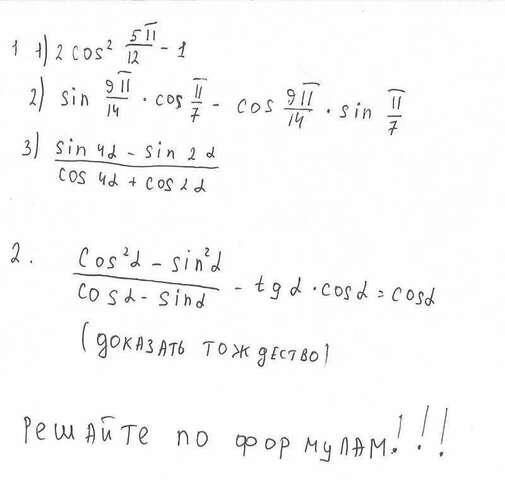 1 1) 2 cos² 5π/12 - 1
2) sin 9π/14 · cos π/7 - cos 9π/14 · sin π/7
3) (sin 4α - sin 2α)/(cos 4α + cos 2α)
2. (cos²α - sin²α)/(cosα - sinα) - tgα · cosα = cosα
(доказать тождество)
РЕШАЙТЕ ПО ФОРМУЛАМ!!!